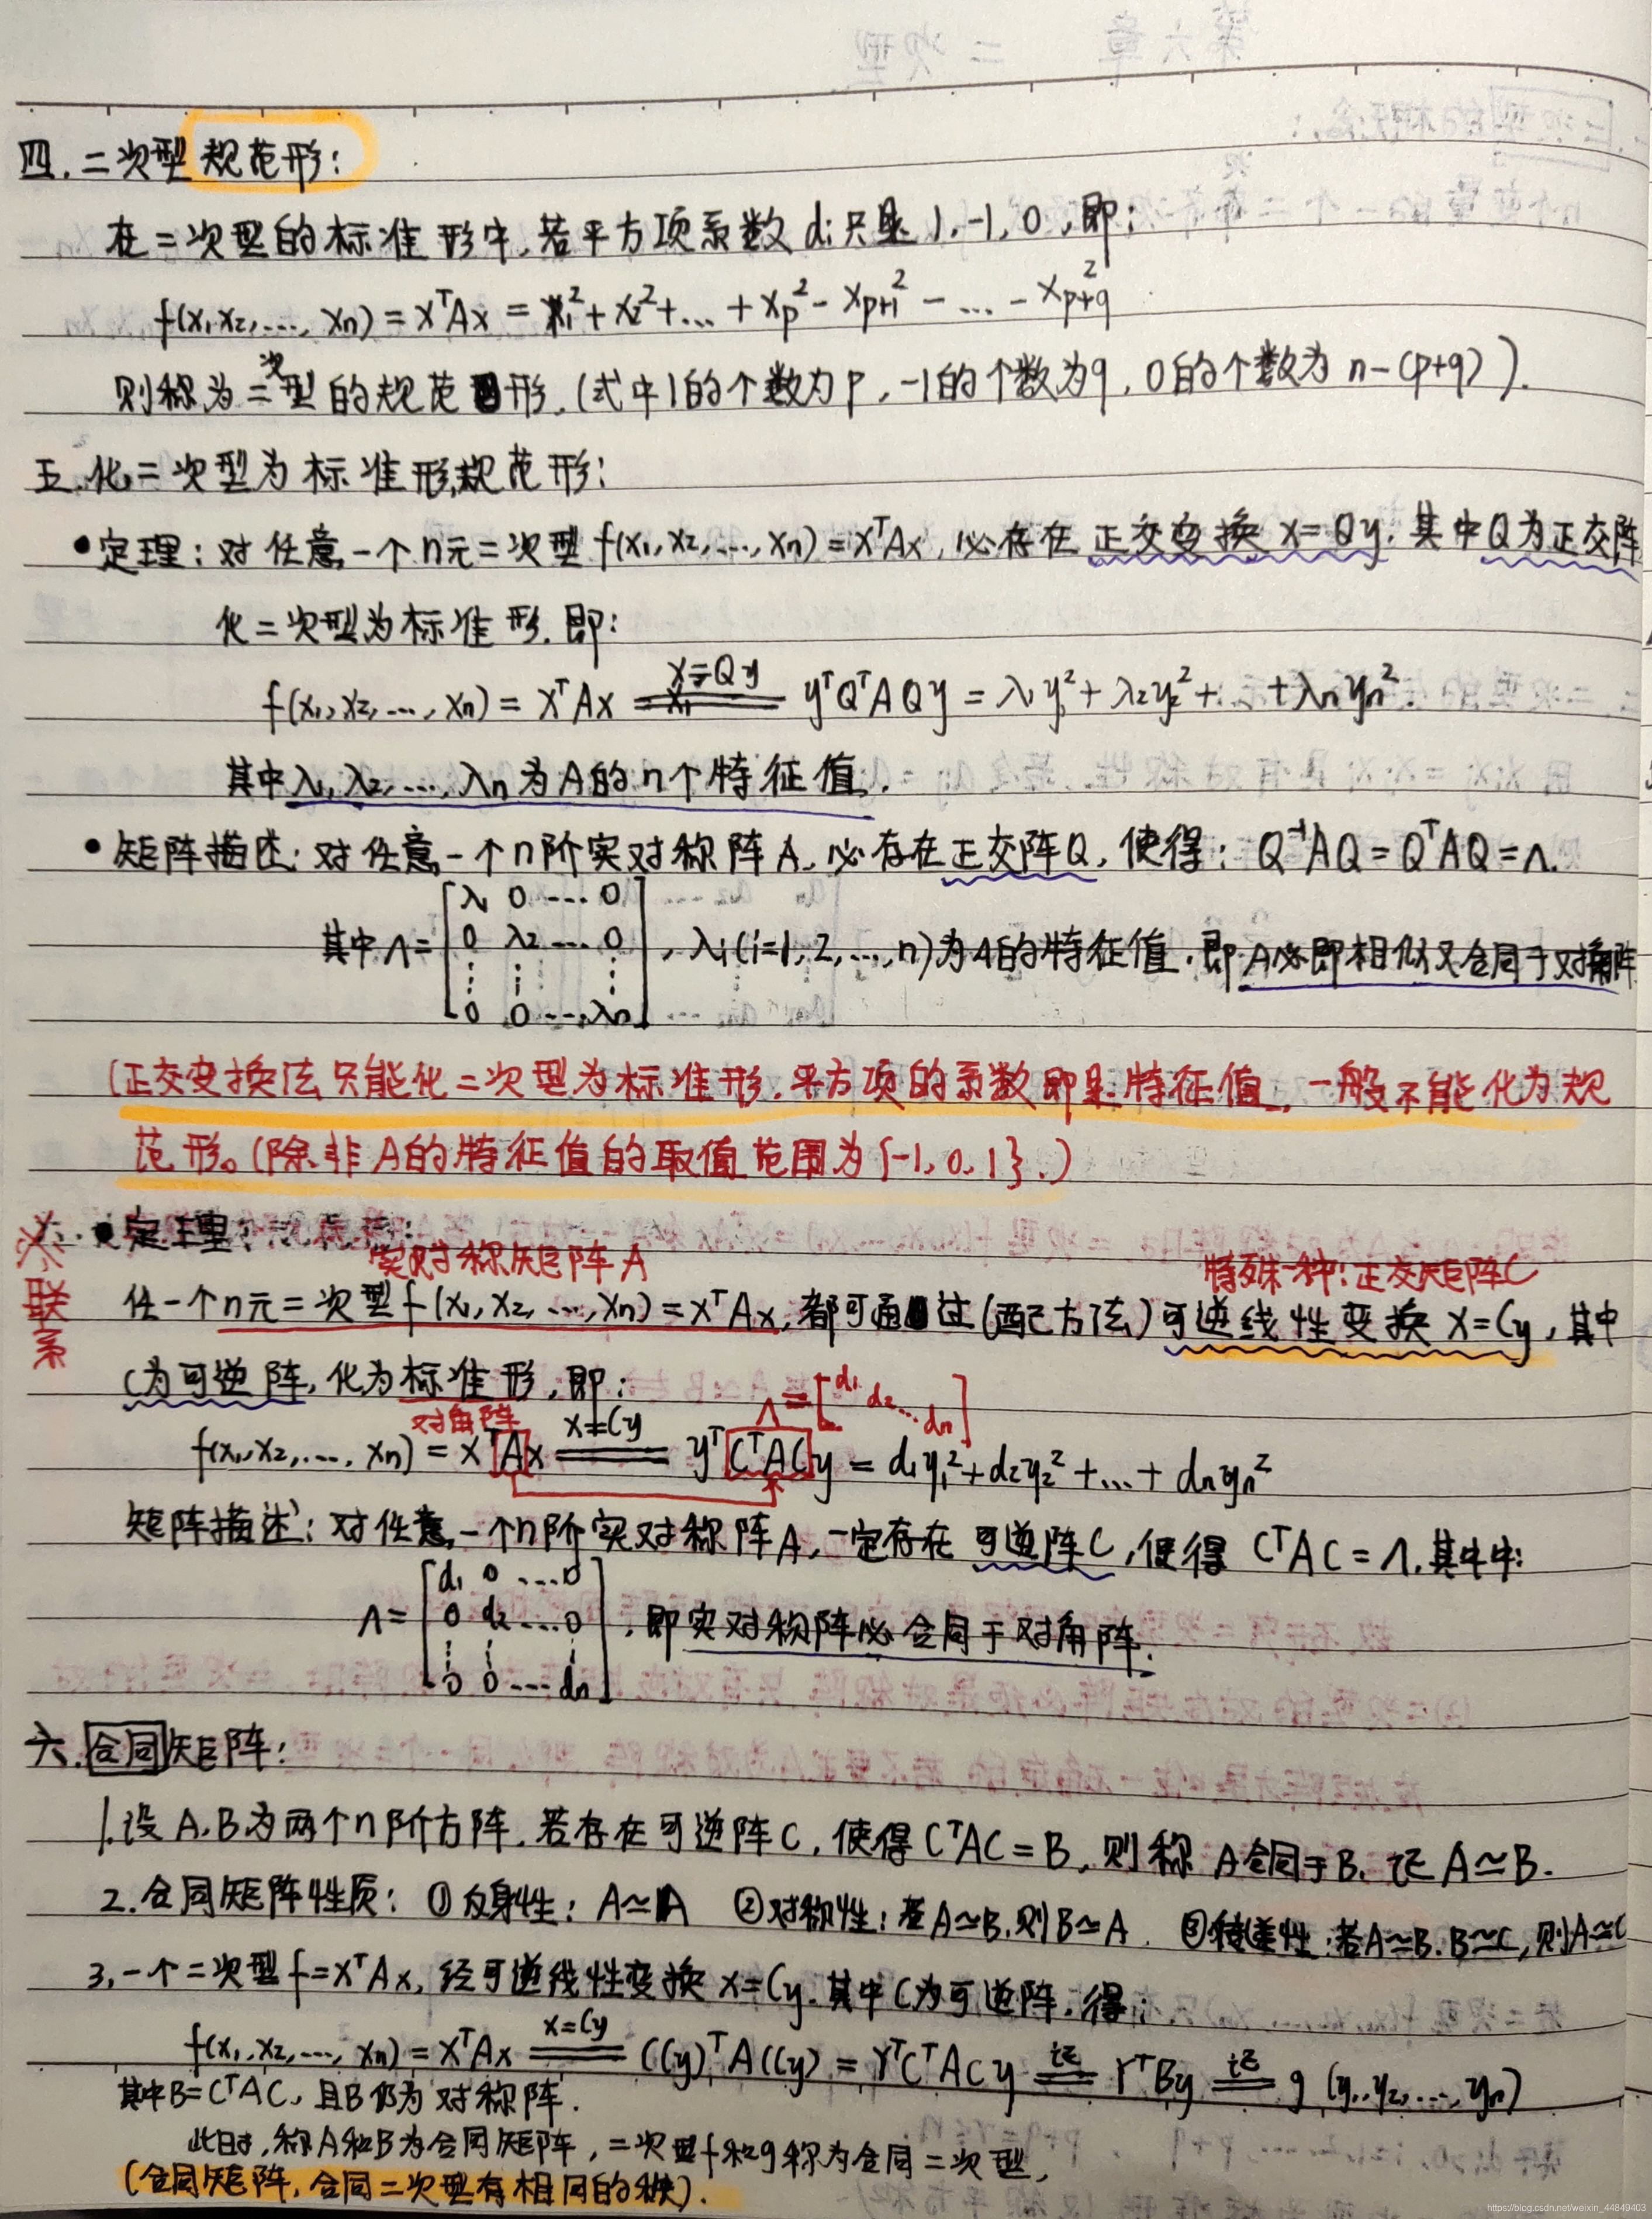 四. 二次型 规范形:
在二次型的标准形中,若平方项系数di只是1,-1,0,即:
f(x₁,x₂,...,xn) = xᵀAx = x₁²+x₂²+...+xp²-xp+1²-...-xp+q²
则称为二次型的规范形.(式中1的个数为p,-1的个数为q,0的个数为n-(p+q)).
五.化二次型为标准形,规范形:
•定理:对任意一个n元二次型f(x₁,x₂,...,xn)=xᵀAx,必存在正交变换x=Qy,其中Q为正交阵
化二次型为标准形.即:
f(x₁,x₂,...,xn) = xᵀAx x=Qy yᵀQᵀAQy = λ₁y₁²+λ₂y₂²+ +λnyn².
其中λ₁,λ₂,...,λn为A的n个特征值.
•矩阵描述:对任意一个n阶实对称阵A,必存在正交阵Q,使得:Q⁻¹AQ=QᵀAQ=Λ.
其中Λ=[λ₁ 0 ... 0
0 λ₂ ... 0
⋮ ⋮ ⋮
0 0 ... λn],λi(i=1,2,...,n)为A的特征值.即A必即相似又合同于对角阵
(正交变换法只能化二次型为标准形.平方项的系数即是特征值,一般不能化为规
范形。(除非A的特征值的取值范围为{-1,0,1}.)
联系
•定理:
实对称矩阵A
特殊一种:正交矩阵C
任一个n元二次型f(x₁,x₂,...,xn)=xᵀAx,都可通过(配方法)可逆线性变换x=Cy,其中
C为可逆阵,化为标准形,即:
对角阵
Λ=[d₁ d₂...dn]
f(x₁,x₂,...,xn) = xᵀAx x=Cy yᵀCᵀACy = d₁y₁²+d₂y₂²+...+dnyn²
矩阵描述:对任意一个n阶实对称阵A,一定存在可逆阵C,使得CᵀAC=Λ.其中:
Λ=[d₁ 0 ... 0
0 d₂ ... 0
⋮ ⋮ ⋮
0 0 ... dn],即实对称阵必合同于对角阵.
六.合同矩阵:
1.设A.B为两个n阶方阵,若存在可逆阵C,使得CᵀAC=B,则称A合同于B.记A≃B.
2.合同矩阵性质:①反射性:A≃A ②对称性:若A≃B.则B≃A. ③传递性:若A≃B.B≃C,则A≃C
3.一个二次型f=xᵀAx,经可逆线性变换x=Cy.其中C为可逆阵.得:
f(x₁,x₂,...,xn)=xᵀAx x=Cy (Cy)ᵀA(Cy) = YᵀCᵀACy 记 YᵀBy 记 g(y₁,y₂,...,yn)
其中B=CᵀAC,且B仍为对称阵.
此时,称A和B为合同矩阵,二次型f和g称为合同二次型,
(合同矩阵,合同二次型有相同的秩).
https://blog.csdn.net/weixin_44849403